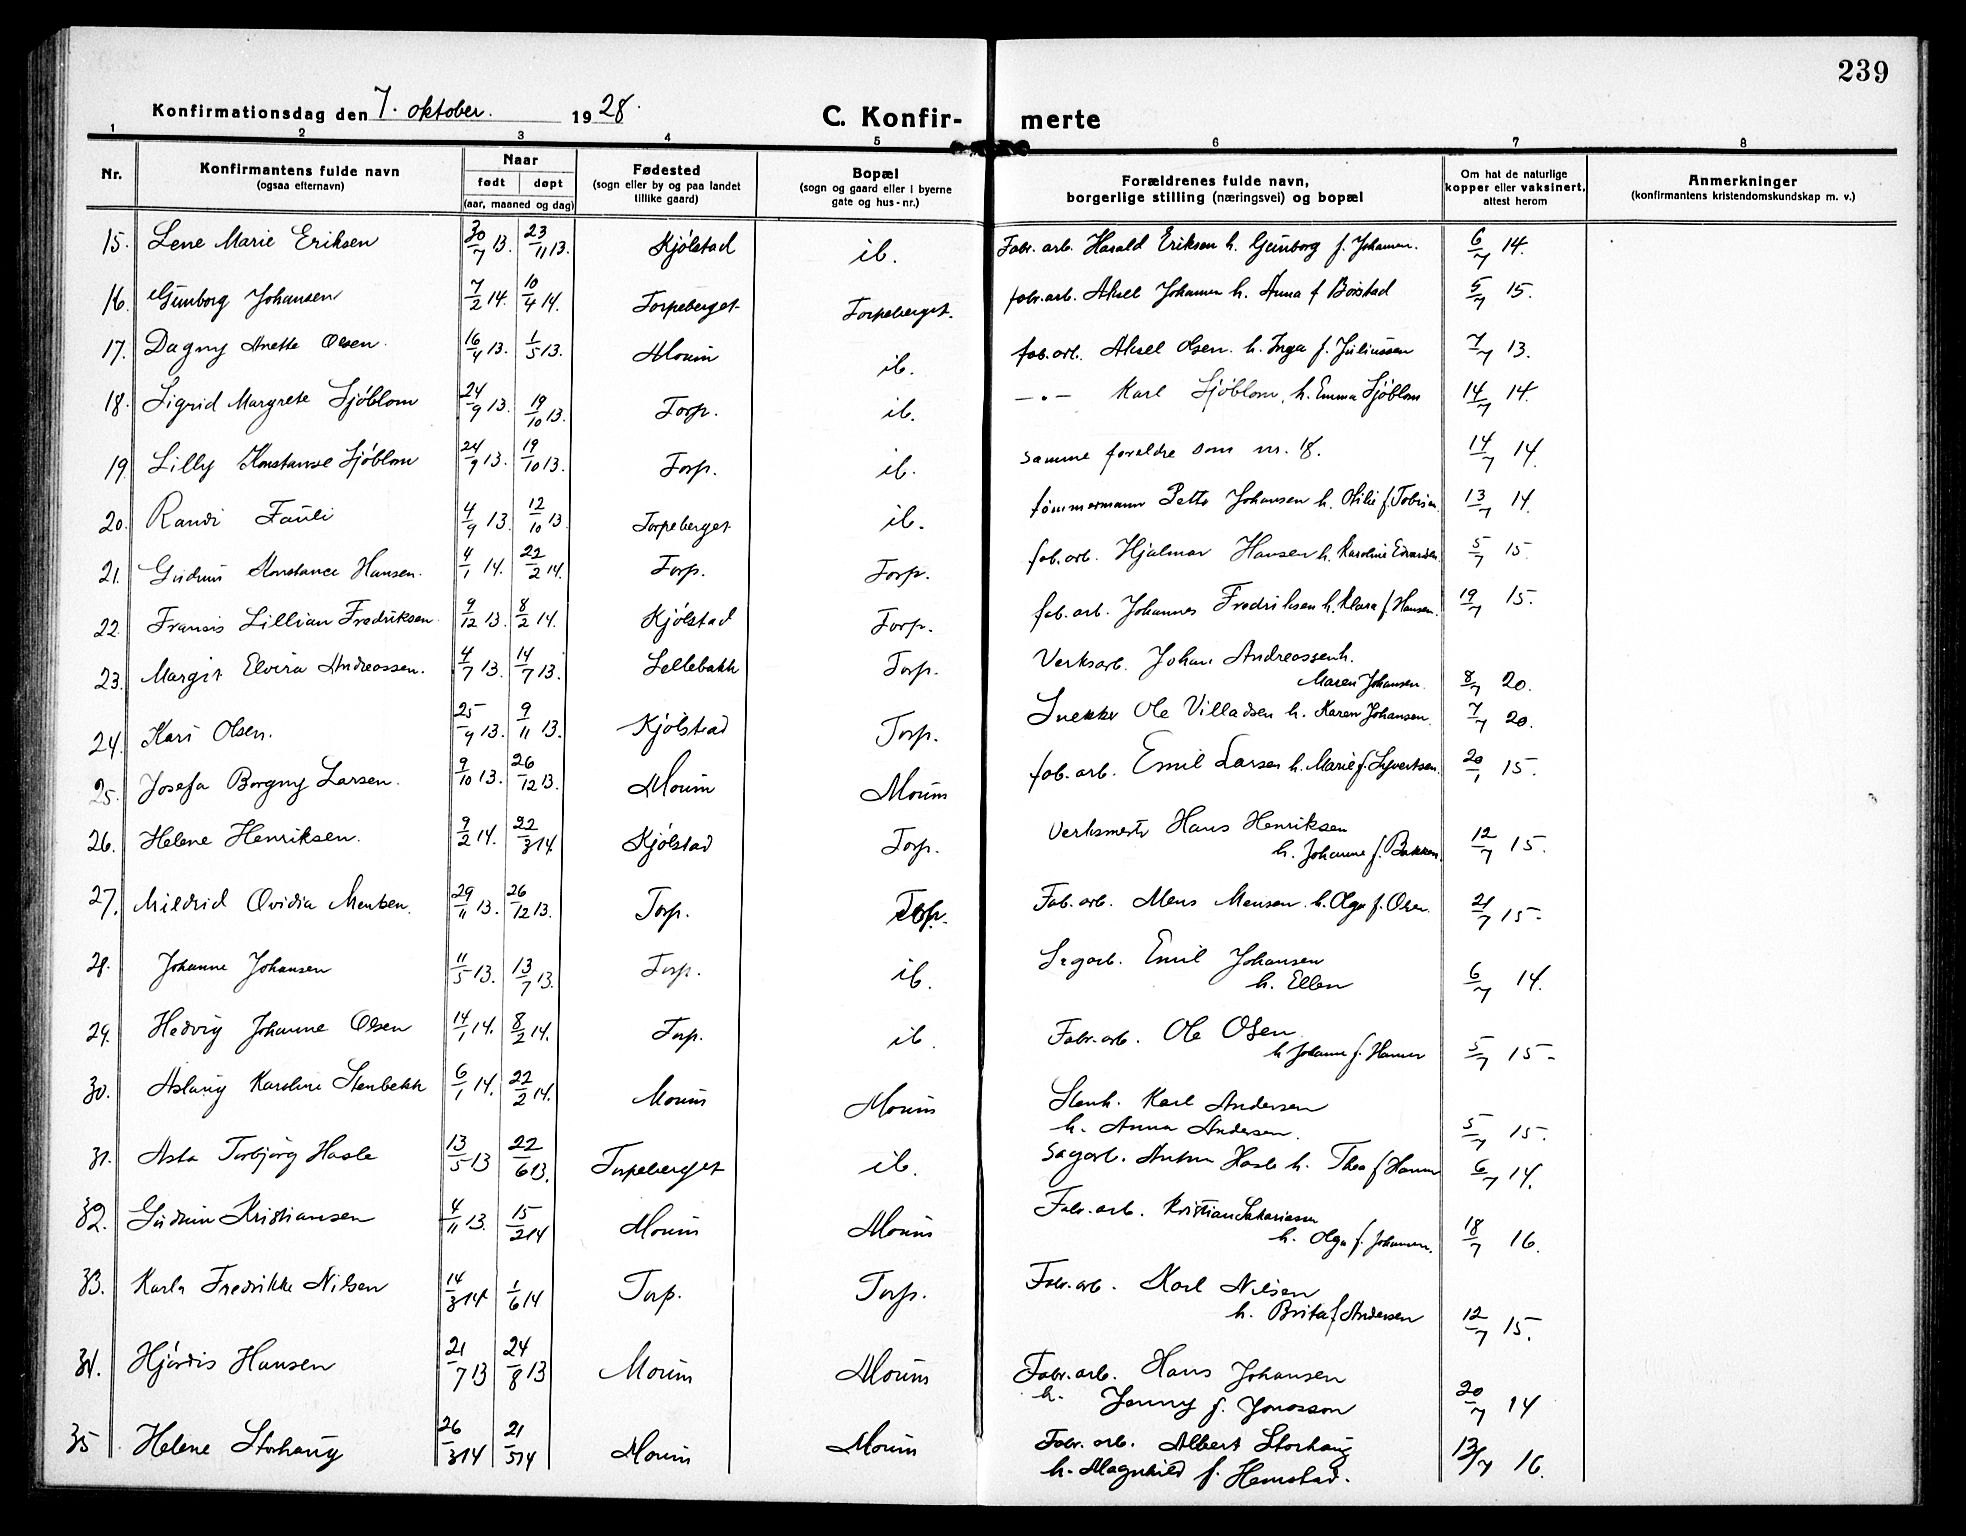 239
Konfirmationsdag den 7. oktober. 1928.
C. Konfir- merte
1 2 3 4 5 6 7 8
Nr. Konfirmantens fulde navn (ogsaa efternavn) Naar født døpt (aar, maaned og dag) Fødested (sogn eller by og paa landet tillike gaard) Bopæl (sogn og gaard eller i byerne gate og hus-nr.) Forældrenes fulde navn, borgerlige stilling (næringsvei) og bopæl Om hat de naturlige kopper eller vaksinert, attest herom Anmerkninger (konfirmantens kristendomskundskap m. v.)
15. Lene Marie Eriksen 30/7 13. 23/11 13. Kjølstad ib. Fabr. arb. Harald Eriksen h. Gunborg f. Johansen. 6/7 14.
16. Gunborg Johansen 7/2 14. 10/4 14. Torpeberget Torpeberget. fabr. arb. Aksel Johansen h. Anna f Boistad 5/7 15.
17. Dagny Anette Olsen. 16/4 13. 1/5 13. Moum ib. fab. arb. Aksel Olsen. h. Inga f. Juliussen 7/7 13.
18. Sigrid Margrete Sjøblom 24/9 13. 19/10 13. Torp. ib. -"- Karl Sjøblom, h. Emma Sjøblom 14/7 14.
19. Lilly Konstanse Sjøblom 24/9 13. 19/10 13. Torp. ib. samme foreldre som nr. 18. 14/7 14.
20. Randi Fauli 4/9 13. 12/10 13. Torpeberget ib. tømmermann Petter Johansen h. Otilie f. Tobiesen 13/7 14.
21. Gudrun Konstance Hansen. 4/1 14. 22/2 14. Torp. Torp. fab. arb. Hjalmar Hansen h. Karoline Evensen 5/7 15.
22. Francis Lillian Fredriksen. 9/12 13. 8/2 14. Kjølstad Torp. fab. arb. Johannes Fredriksen h. Klara f. Hansen. 19/7 15.
23. Margit Elvira Andreassen. 4/7 13. 14/7 13. Lellebakk Torp. Verksarb. Johan Andreassen h.
Maren Johansen. 8/7 20.
24. Kari Olsen. 25/9 13. 9/11 13. Kjølstad Torp. Snekker Ole Villadsen h. Karen Johansen. 7/7 20.
25. Josefa Borgny Larsen. 9/10 13. 26/12 13. Moum Moum fab. arb. Emil Larsen h. Marie f. Syvertsen. 20/1 15.
26. Helene Henriksen. 9/2 14. 22/3 14 Kjølstad Torp. Verksmester Hans Henriksen
h. Johanne f. Bakken. 12/7 15.
27. Mildrid Ovidia Mensen. 29/11 13. 26/12 13. Torp. Torp. Fab. arb. Mens Mensen. h. Olga f. Olsen. 21/7 15.
28. Johanne Johansen 11/5 13. 13/7 13. Torp. ib. Sagarb. Emil Johansen
h. Ellen 6/7 14.
29. Hedvig Johanne Olsen 14/1 14. 8/2 14. Torp. ib. Fabr. arb. Ole Olsen
h. Johanne f. Hansen 5/7 15.
30. Aslaug Karoline Stenbekk 6/1 14. 22/2 14. Moum Moum Stenh. Karl Andersen
h. Anna Andersen. 5/7 15.
31. Asta Torbjørg Hasle 13/5 13 22/6 13. Torpeberget ib. Sagarb. Anton Hasle h. Thea f Hansen 6/7 14.
32. Gudrun Kristiansen 4/11 13. 15/2 14 Moum Moum Fabr. arb. Kristian Sakariassen
h. Olga f. Johansen. 18/7 16.
33. Karla Fredrikke Nilsen 14/3 14 1/6 14 Torp. Torp. Fabr. arb. Karl Nilsen
h. Brita f Andersen 12/7 15.
34. Hjørdis Hansen 21/7 13 24/8 13 Moum Moum Fabr. arb. Hans Johansen
h. Jenny f. Jonasson 20/7 14
35 Helene Storhaug 26/3 14 21/5 14 Moum Moum Fabr. arb. Albert Storhaug
h. Magnhild f. Hemstad. 13/7 16.